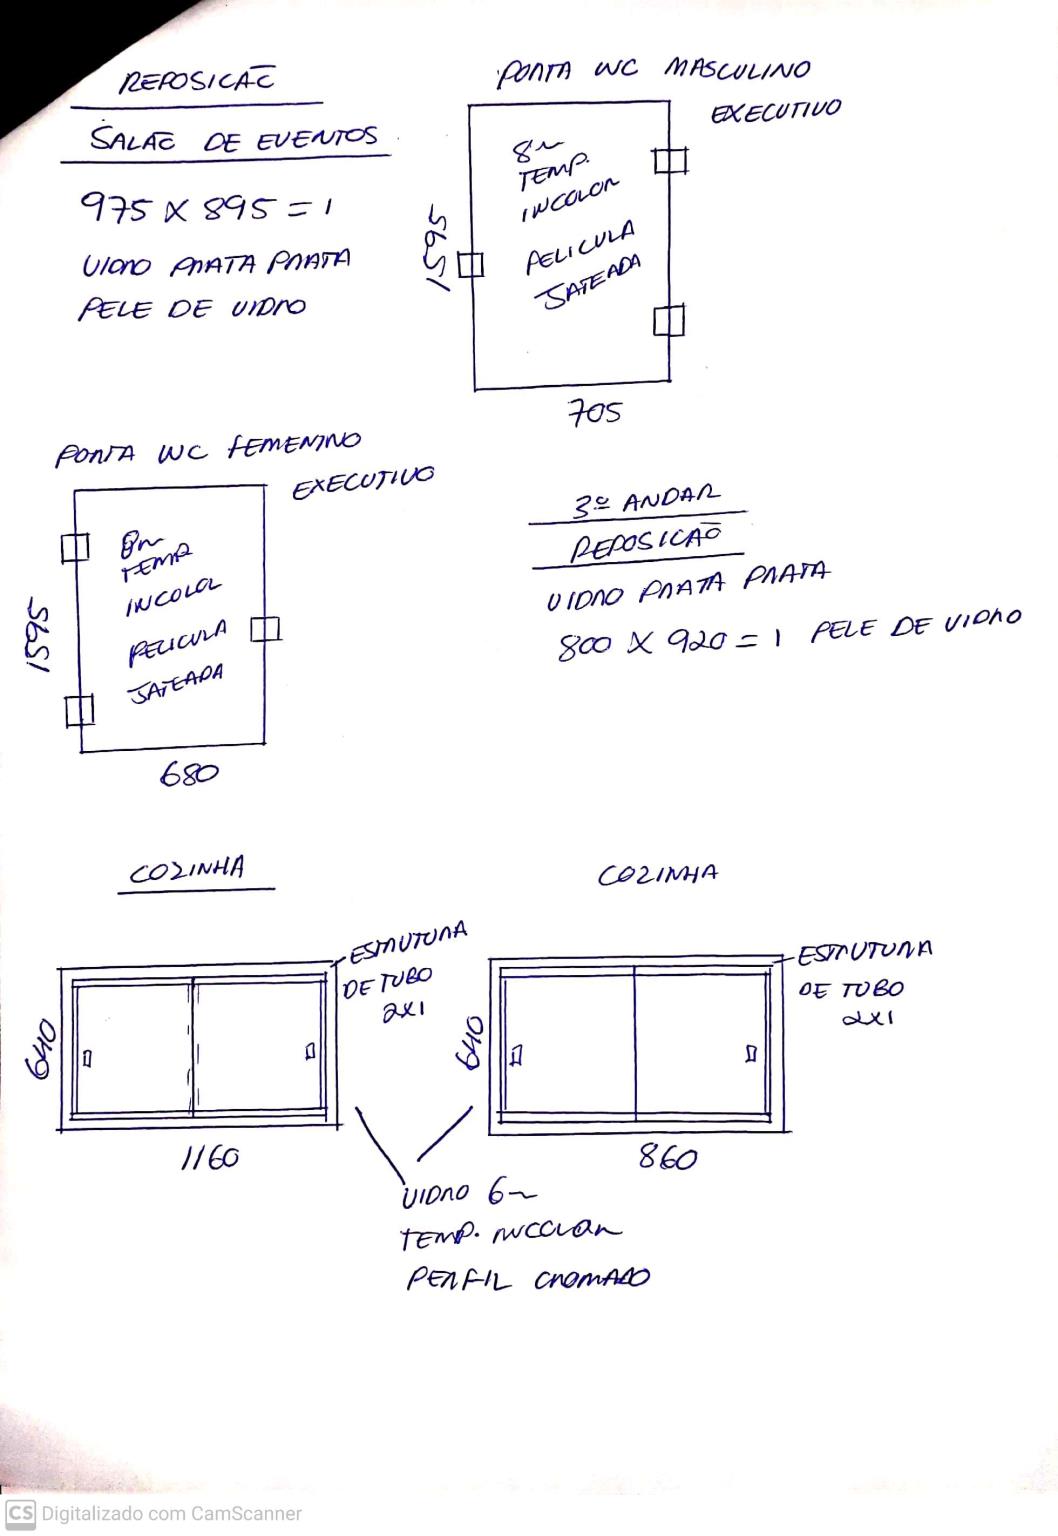 REPOSICÃO
SALÃO DE EVENTOS
975 X 895 = 1
VIDRO PRATA PRATA
PELE DE VIDRO
PORTA WC MASCULINO
EXECUTIVO
8m
TEMP.
INCOLOR
PELICULA
JATEADA
1595
705
PORTA WC FEMENINO
EXECUTIVO
8m
TEMP
INCOLOR
PELICULA
JATEADA
1595
680
3º ANDAR
REPOSICÃO
VIDRO PRATA PRATA
800 X 920 = 1 PELE DE VIDRO
COZINHA
ESTRUTURA
DE TUBO
2X1
640
1160
COZINHA
ESTRUTURA
DE TUBO
2X1
640
860
VIDRO 6m
TEMP. INCOLOR
PERFIL CROMADO
CS Digitalizado com CamScanner